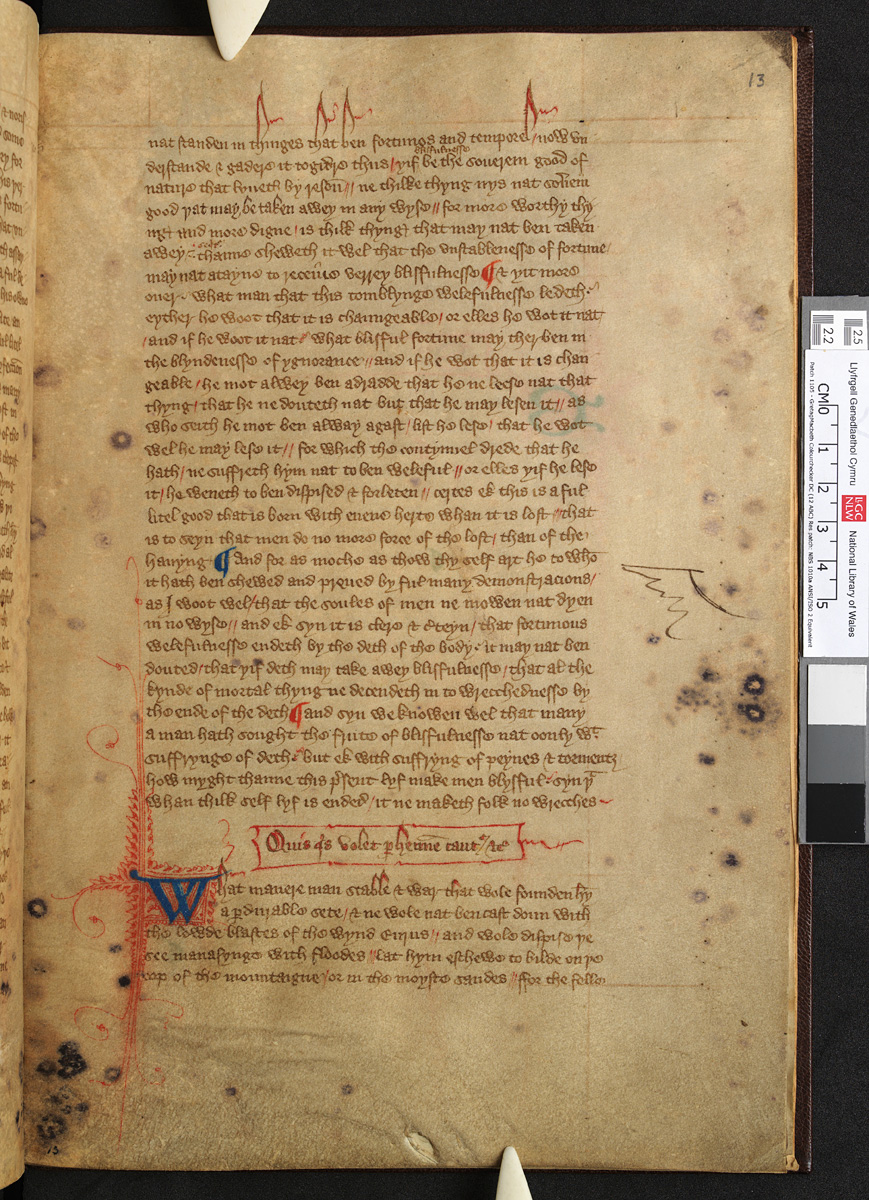 13
nat standen in thinges that ben fortunos and temporel / now vn
blisfulnesse
derstande & gadere it togidre thus / yif be the souerein good of
nature that lyueth by resoũ // ne thilke thyng nys nat souein
good yat may be taken awey in any wyse // for more worthy thy
ng and more digne / is thilk thyng that may nat ben taken
awey thanne sheweth it wel that the vnstablenesse of fortune
may nat atayne to receiue verrey blisfulnesse ¶ & yit more
ouer what man that this tomblynge welefulnesse ledeth
eyther he woot that it is chaungeable / or elles he wot it nat
/ and if he woot it nat what blisful fortune may ther ben in
the blyndenesse of ygnorance // and if he wot that it is chan
geable / he mot alwey ben adradde that he ne leese nat that
thyng / that he ne douteth nat but that he may lesen it // as
who seith he mot ben alway agast / list he lese / that he wot
wel he may lese it // for which the contynuel drede that he
hath / ne suffreth hym nat to ben weleful // or elles yif he lese
it / he weneth to ben dispised & forleten // certes ek this is a ful
litel good that is born with euene herte whan it is lost that
is to seyn that men do no more force of the lost / than of the
hauyng ¶ And for as moche as thow thy self art he to who
it hath ben shewed and preued by ful many demonstracions /
as I woot wel / that the soules of men ne mowen nat dyen
in no wyse // and ek syn it is clere & cteyn / that fortunous
welefulnesse endeth by the deth of the body it may nat ben
douted / that yif deth may take awey blisfulnesse / that al the
kynde of mortal thyng ne decendeth in to wrecchednesse by
the ende of the deth ¶ and syn we knowen wel that many
a man hath sought the frute of blisfulnesse nat oonly wt
suffrynge of deth but ek with suffryng of peynes & tormentz
how myght thanne this psent lyf make men blysful syn yt
whan thilk self lyf is ended / it ne maketh folk no wrecches
Quis qs volet phenne caut &c
What manere man stable & war that wole founden hy
a pdurable sete / & ne wole nat ben cast doun with
the lowde blastes of the wynd Eurus // and wole dispise ye
see manasynge with floodes // lat hym eschewe to bilde on ye
cop of the mountaigne / or in the moyste sandes // ffor the felle
13
Llyfrgell Genedlaethol Cymru
LLGC
NLW
National Library of Wales
2.5
2.2
CM 0 1 2 3 4 5